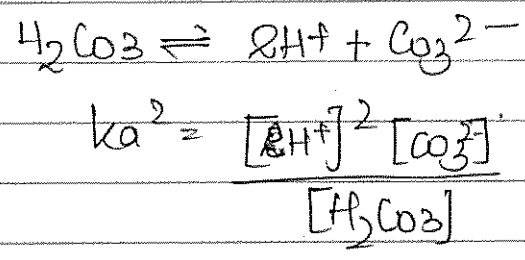 H₂Co3 ⇌ 2H⁺ + Co₃²⁻
ka² = [H⁺]² [Co₃²⁻]
[H₂Co3]